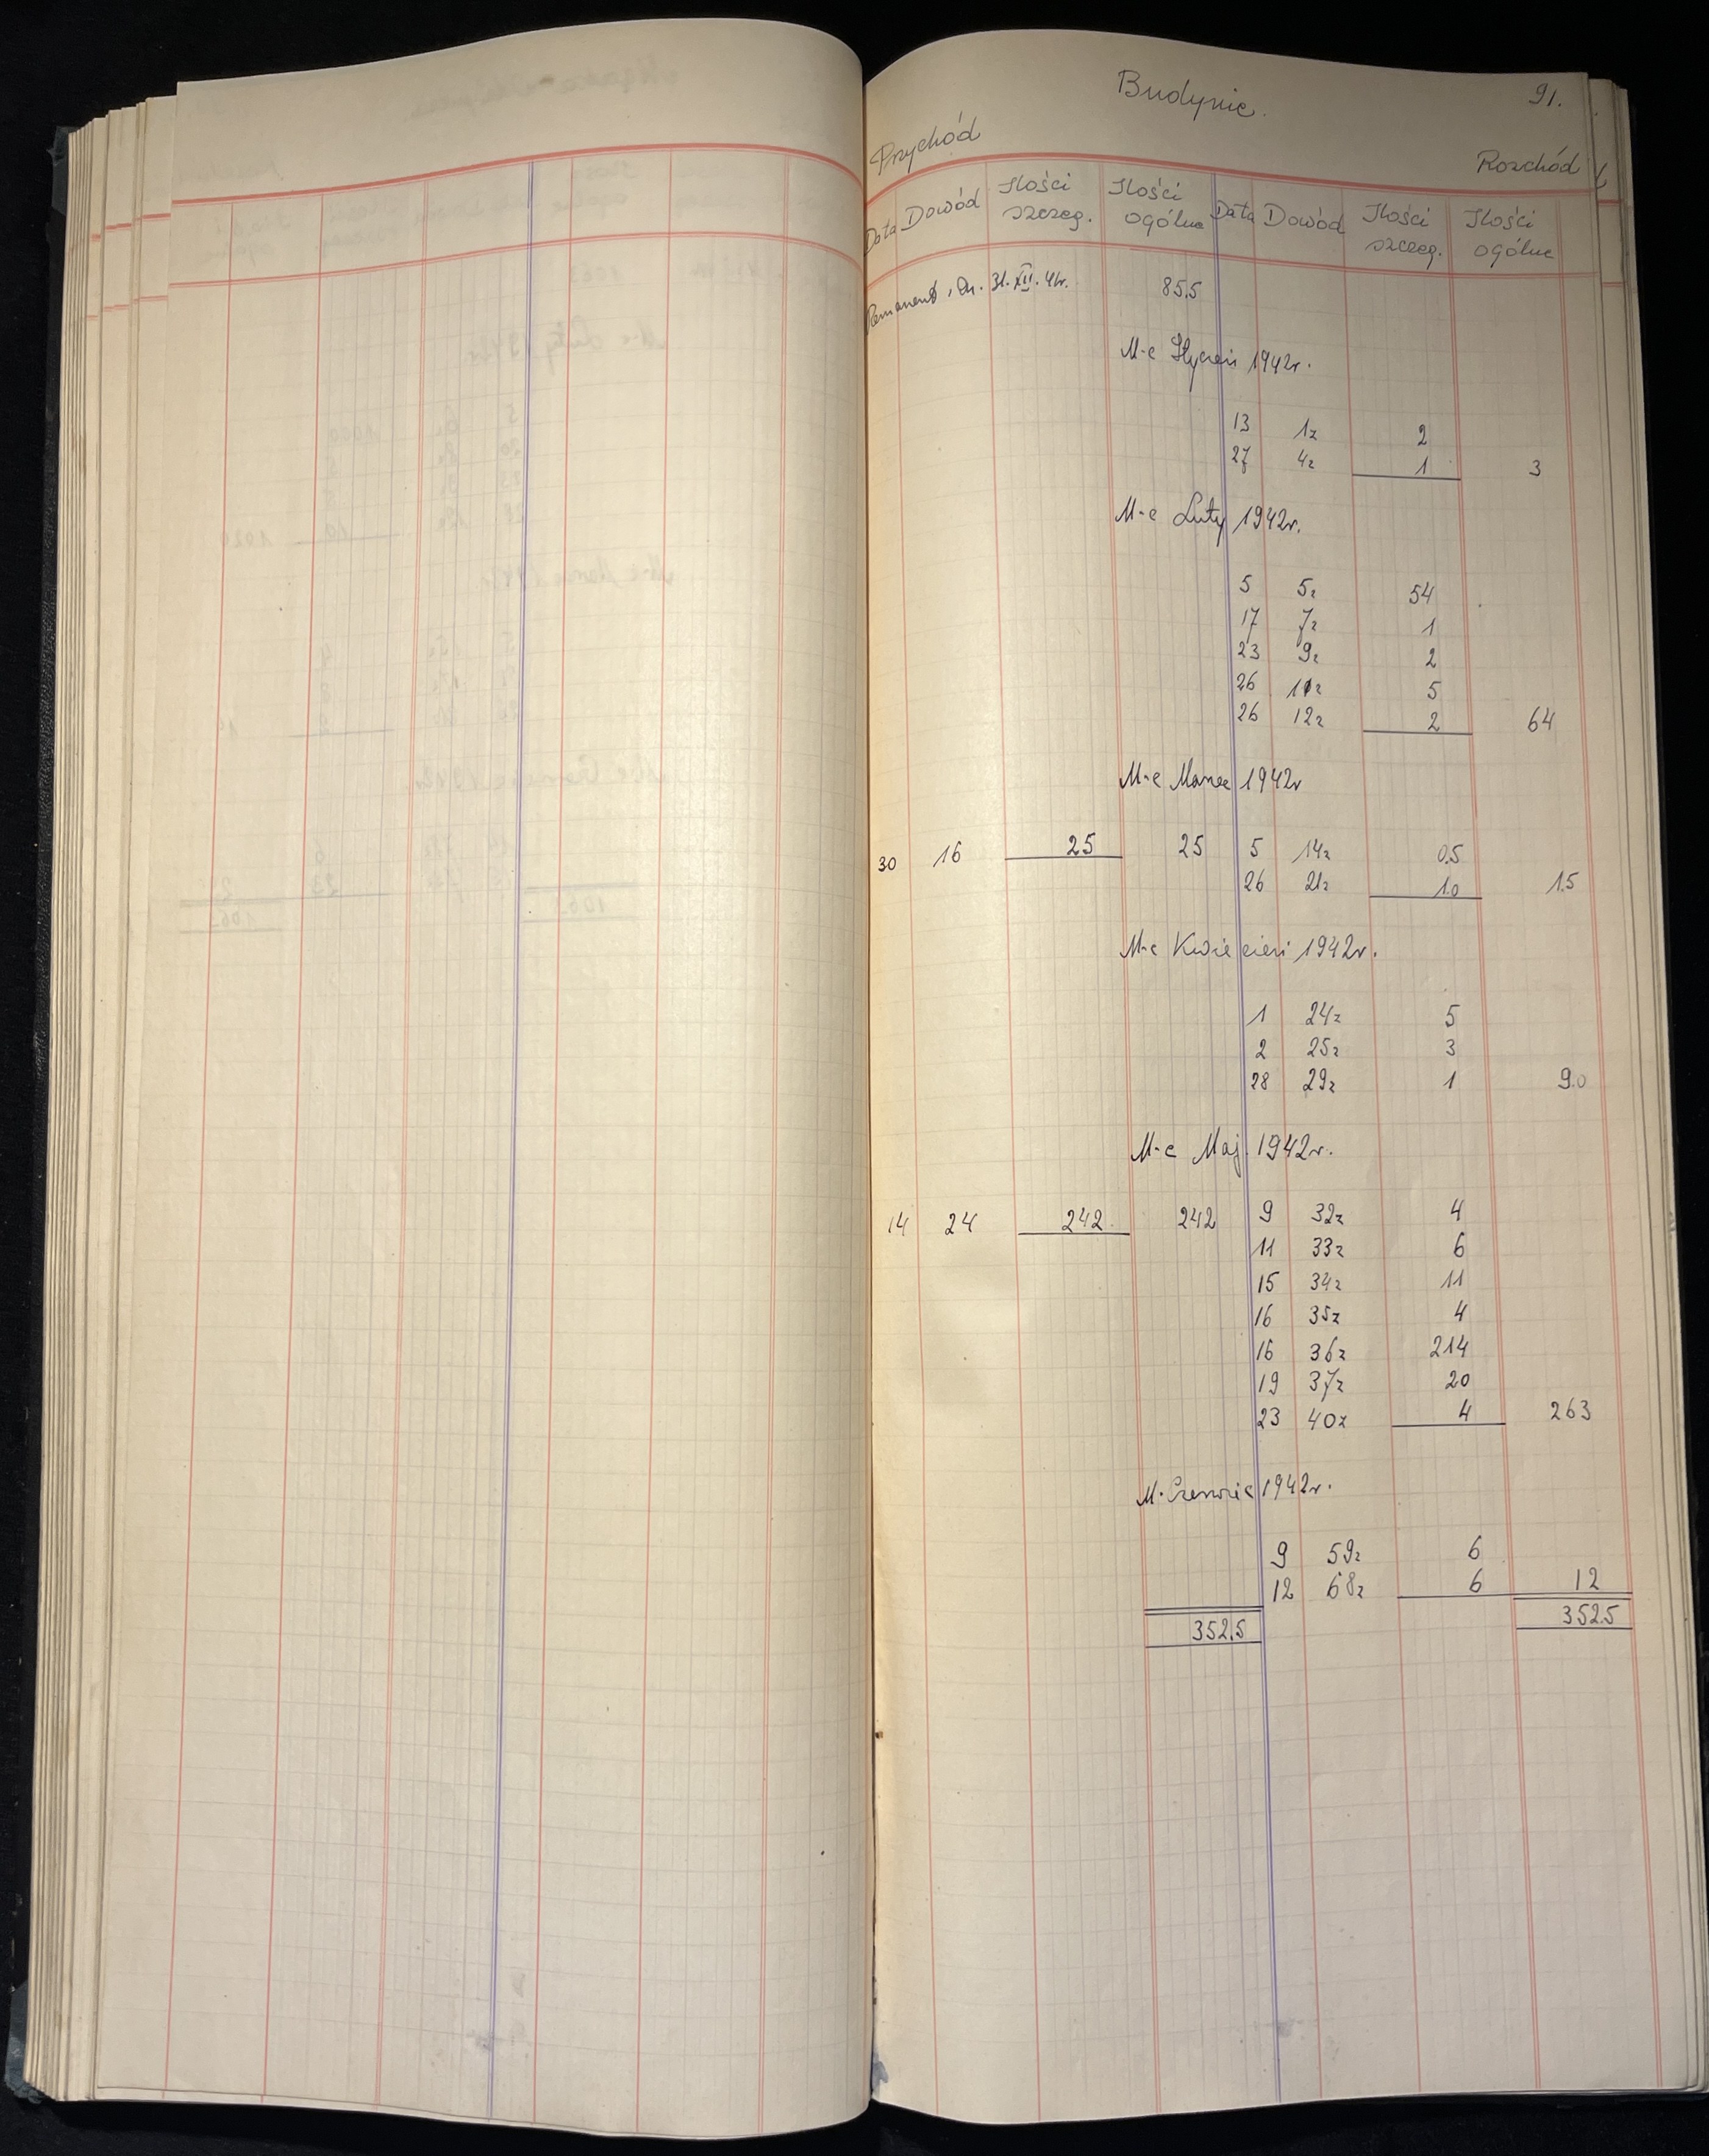 Budynie. 91.
Przychód Rozchód
Data Dowód Ilości szczeg. Ilości ogólne Data Dowód Ilości szczeg. Ilości ogólne
Remanent, Dn. 31.XII.41r. 85.5
M-c Styczeń 1942r.
13 1z 2
27 4z 1 3
M-c Luty 1942r.
5 5z 54
17 7z 1
23 9z 2
26 11z 5
26 12z 2 64
M-c Marzec 1942r
30 16 25 25 5 14z 0.5
26 21z 1.0 1.5
M-c Kwiecień 1942r.
1 24z 5
2 25z 3
28 29z 1 9.0
M-c Maj 1942r.
14 24 242 242 9 32z 4
11 33z 6
15 34z 11
16 35z 4
16 36z 214
19 37z 20
23 40z 4 263
M. Czerwiec 1942r.
9 59z 6
12 68z 6 12
352.5 352.5